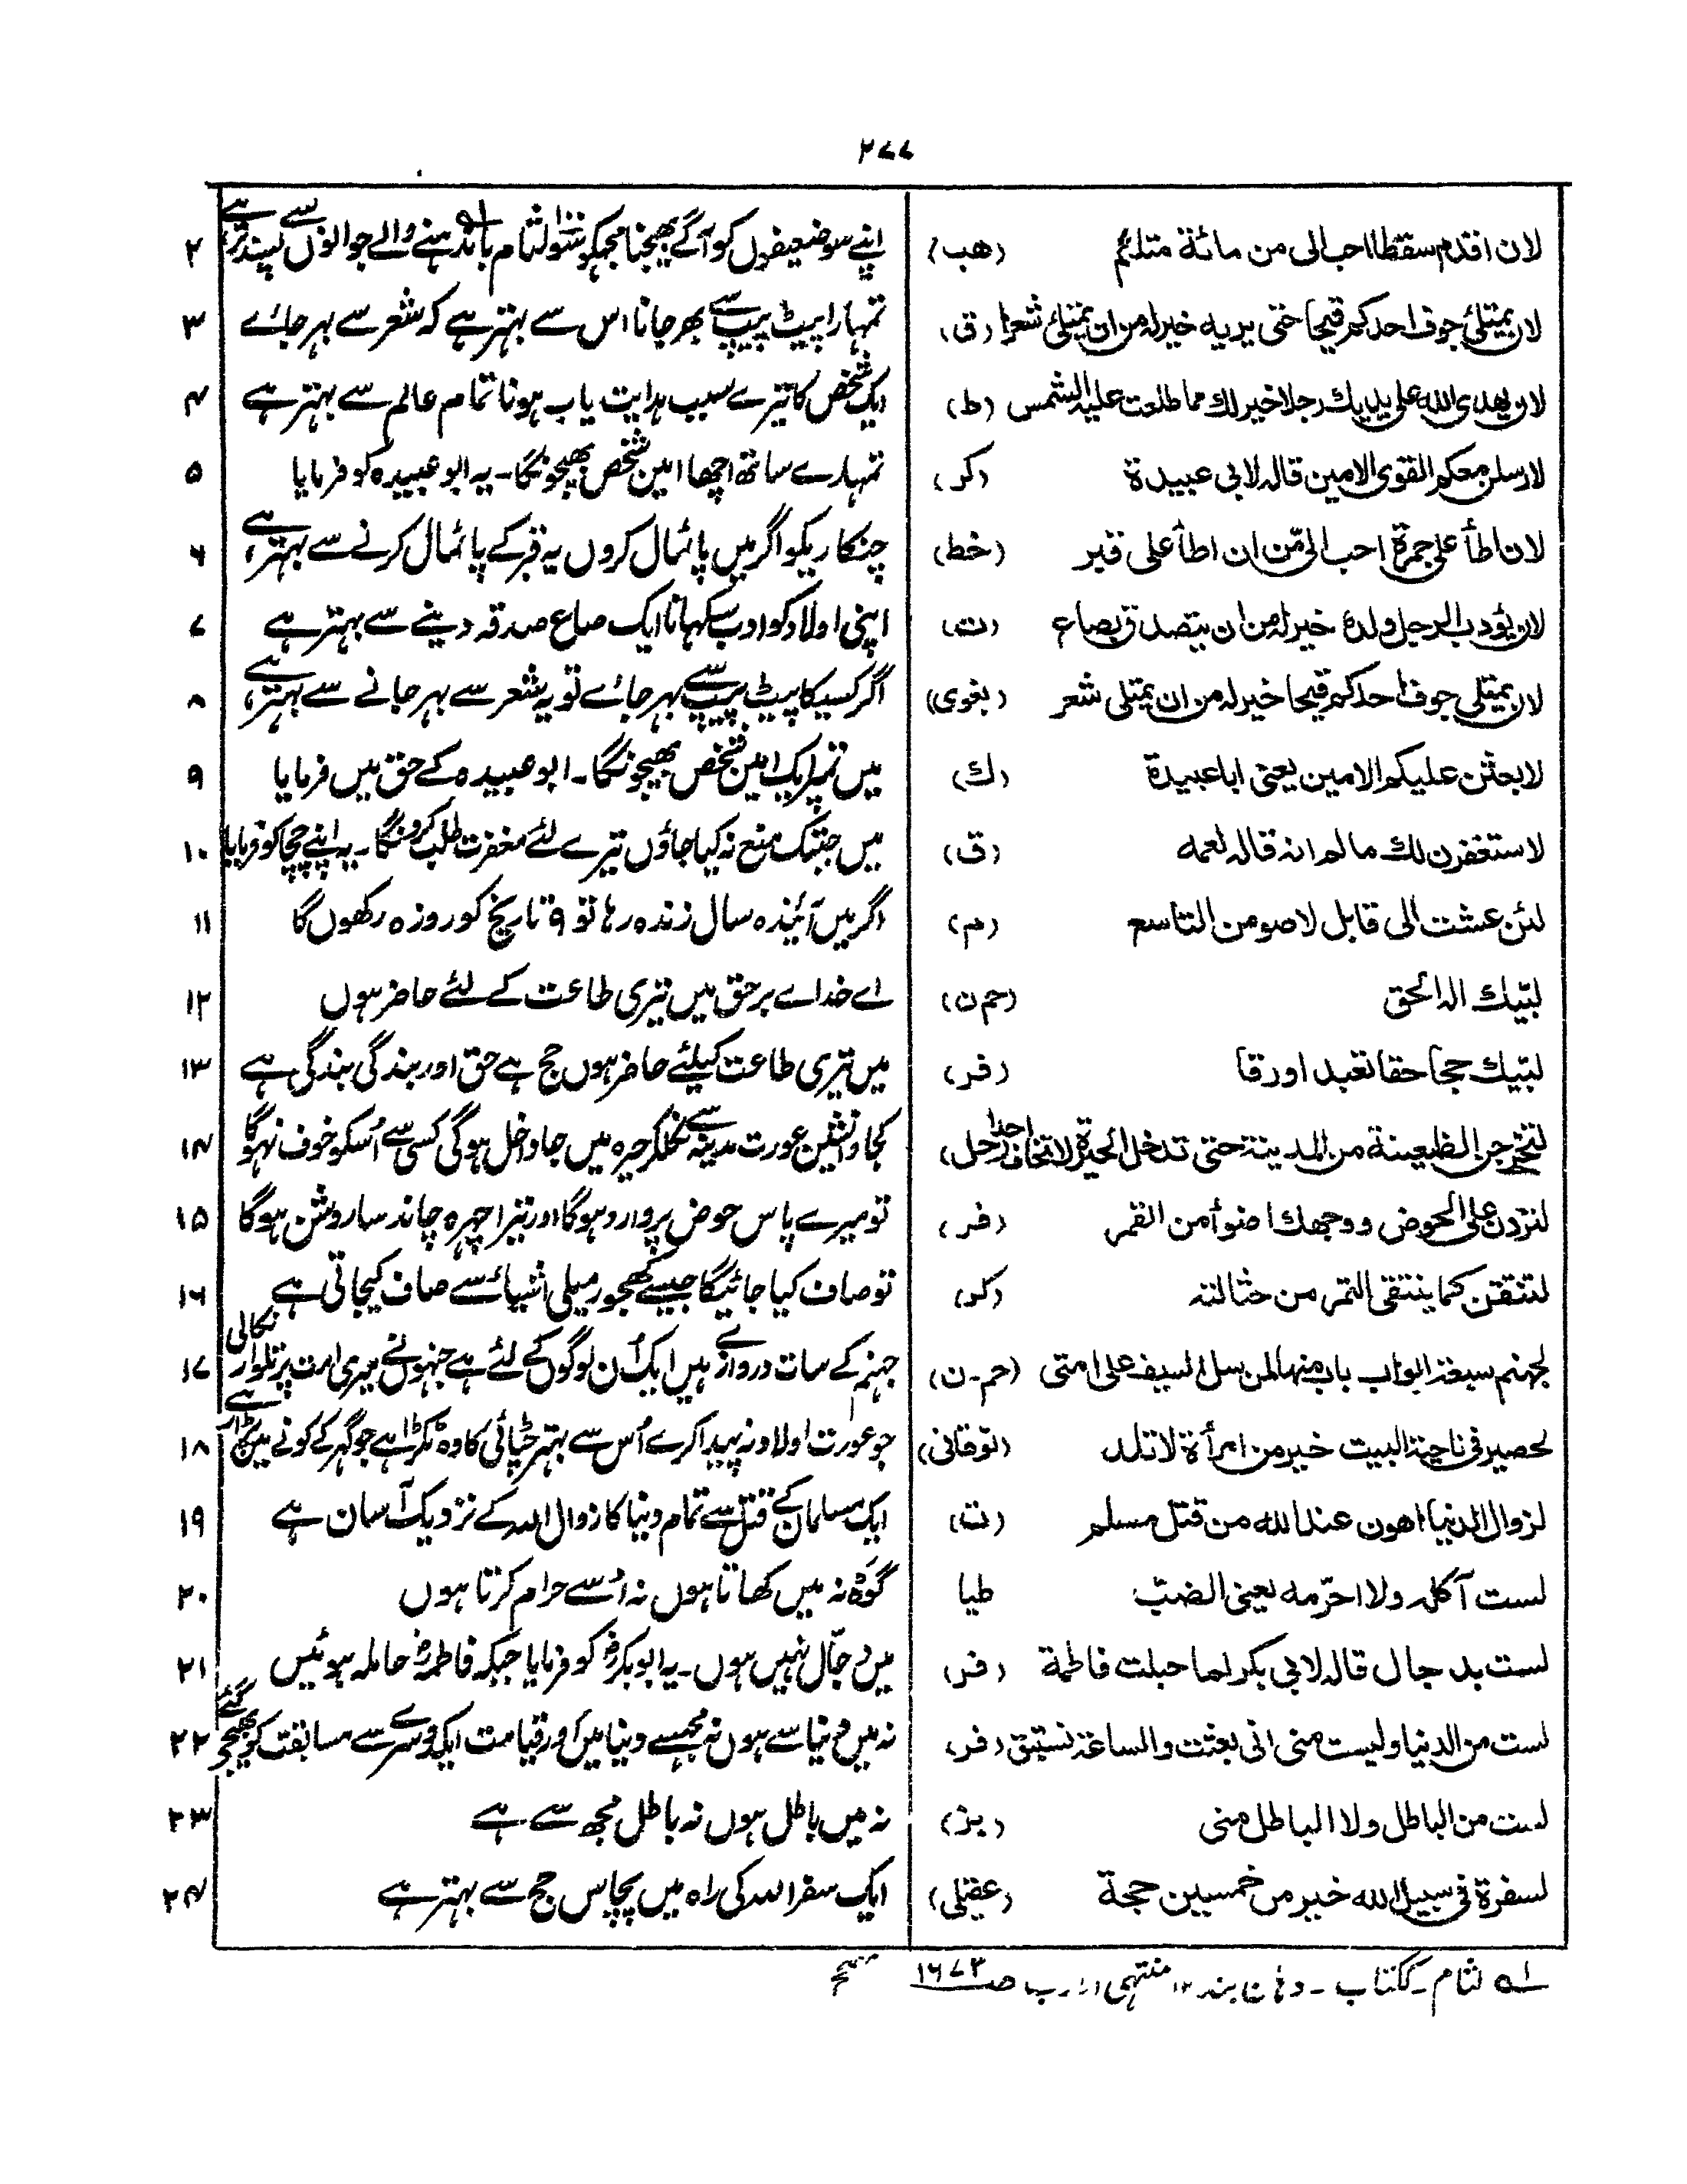 ۲۷۷
لان اقدم سقطا احب الی من مائة متلئم (هب) اپنے سو ضعیفوں کو آگے بھیجنا مجہکو سو لثام باندہنے والے جوانوں سے پسند تر ہے ۲
لان یمتلئ جوف احدکم قیحا حتی یریه خیر له من ان یمتلئ شعرا (ق) تمہارا پیٹ پیپ سے بھر جانا اس سے بہتر ہے کہ شعر سے بہر جاے ۳
لان یهدی الله علی یدیك رجلا خیر لك مما طلعت علیه الشمس (ط) ایک شخص کا تیرے سبب ہدایت یاب ہونا تمام عالم سے بہتر ہے ۴
لارسلن معکم القوی الامین قاله لابی عبیدة (کر) تمہارے ساتھ اچھا امین شخص بھیجونگا ۔ یہ ابو عبیدہ کو فرمایا ۵
لان اطأ علی جمرة احب الیّ من ان اطأ علی قبر (خط) چنگاریکو اگر میں پائمال کروں یہ قبر کے پائمال کرنے سے بہتر ہے ۶
لان یؤدب الرجل ولده خیر له من ان یتصدق بصاع (ت) اپنی اولاد کو ادب سکہانا ایک صاع صدقہ دینے سے بہتر ہے ۷
لان یمتلی جوف احدکم قیحا خیر له من ان یمتلی شعر (بغوی) اگر کسیکا پیٹ پیپ سے بہر جاے تو یہ شعر سے بہر جانے سے بہتر ہے ۸
لابعثن علیکم الامین یعنی اباعبیدة (ك) میں تمپر ایک امین شخص بھیجونگا ۔ ابو عبیدہ کے حق میں فرمایا ۹
لاستغفرن لك مالم انه قاله لعمه (ق) میں جبتک منع نہ کیا جاؤں تیرے لئے مغفرت طلب کرونگا ۔ یہ اپنے چچا کو فرمایا ۱۰
لئن عشت الی قابل لاصومن التاسع (م) اگر میں آئندہ سال زندہ رہا تو ۹ تاریخ کو روزہ رکھوں گا ۱۱
لبّیك اله الحق (حم ن) اے خداے برحق میں تیری طاعت کے لئے حاضر ہوں ۱۲
لبّیك حجا حقا تعبدا ورقا (فر) میں تیری طاعت کیلئے حاضر ہوں حج ہے حق اور بندگی بندگی ہے ۱۳
لتخرجن الظعینة من المدینة حتی تدخل الحیرة لا تخاف احدا (حل) کجاوانشین عورت مدینہ سے نکلکر حیرہ میں جا دخل ہوگی کسی سے اُسکو خوف نہوگا ۱۴
لتردن علی الحوض ووجهك اضوأ من القمر (فر) تو میرے پاس حوض پر وارد ہوگا اور تیرا چہرہ چاند سا روشن ہوگا ۱۵
لتنتقن کما ینتقی التمر من حثالته (کر) تو صاف کیا جائیگا جیسے کھجور میلی اشیاء سے صاف کیجاتی ہے ۱۶
لجهنم سبعة ابواب باب منها لمن سل السیف علی امتی (حم۔ن) جہنم کے سات دروازے ہیں ایک اُن لوگوں کے لئے ہے جنہوں نے میری امت پر تلوار نکالی ہے ۱۷
لحصیر فی ناحیة البیت خیر من امرأة لا تلد (توقانی) جو عورت اولاد نہ پیدا کرے اُس سے بہتر چٹائی کا وہ ٹکڑا ہے جو گہر کے کونے میں پڑا ۱۸
لزوال الدنیا اهون عند الله من قتل مسلم (ت) ایک مسلمان کے قتل سے تمام دنیا کا زوال اللہ کے نزدیک آسان ہے ۱۹
لست آکله ولا احرّمه یعنی الضبّ طیا گوہ نہ میں کھاتا ہوں نہ اُسے حرام کرتا ہوں ۲۰
لست بدجال قاله لابی بکر لما حبلت فاطمة (فر) میں دجّال نہیں ہوں ۔ یہ ابو بکرؓ کو فرمایا جبکہ فاطمہؓ حاملہ ہوئیں ۲۱
لست من الدنیا ولیست منی انی بعثت والساعة نستبق (فر) نہ میں دنیا سے ہوں نہ مجہسے دنیا میں اور قیامت ایک دوسرے سے مسابقت کو بھیجے گئے ۲۲
لست من الباطل ولا الباطل منی (بز) نہ میں باطل ہوں نہ باطل مجھ سے ہے ۲۳
لسفرة فی سبیل الله خیر من خمسین حجة (عقیلی) ایک سفر اللہ کی راہ میں پچاس حج سے بہتر ہے ۲۴
۱ه لثام ۔ ککتاب ۔ دہان بند ۱۲ منتہی الارب صـ ۱۶۷۳